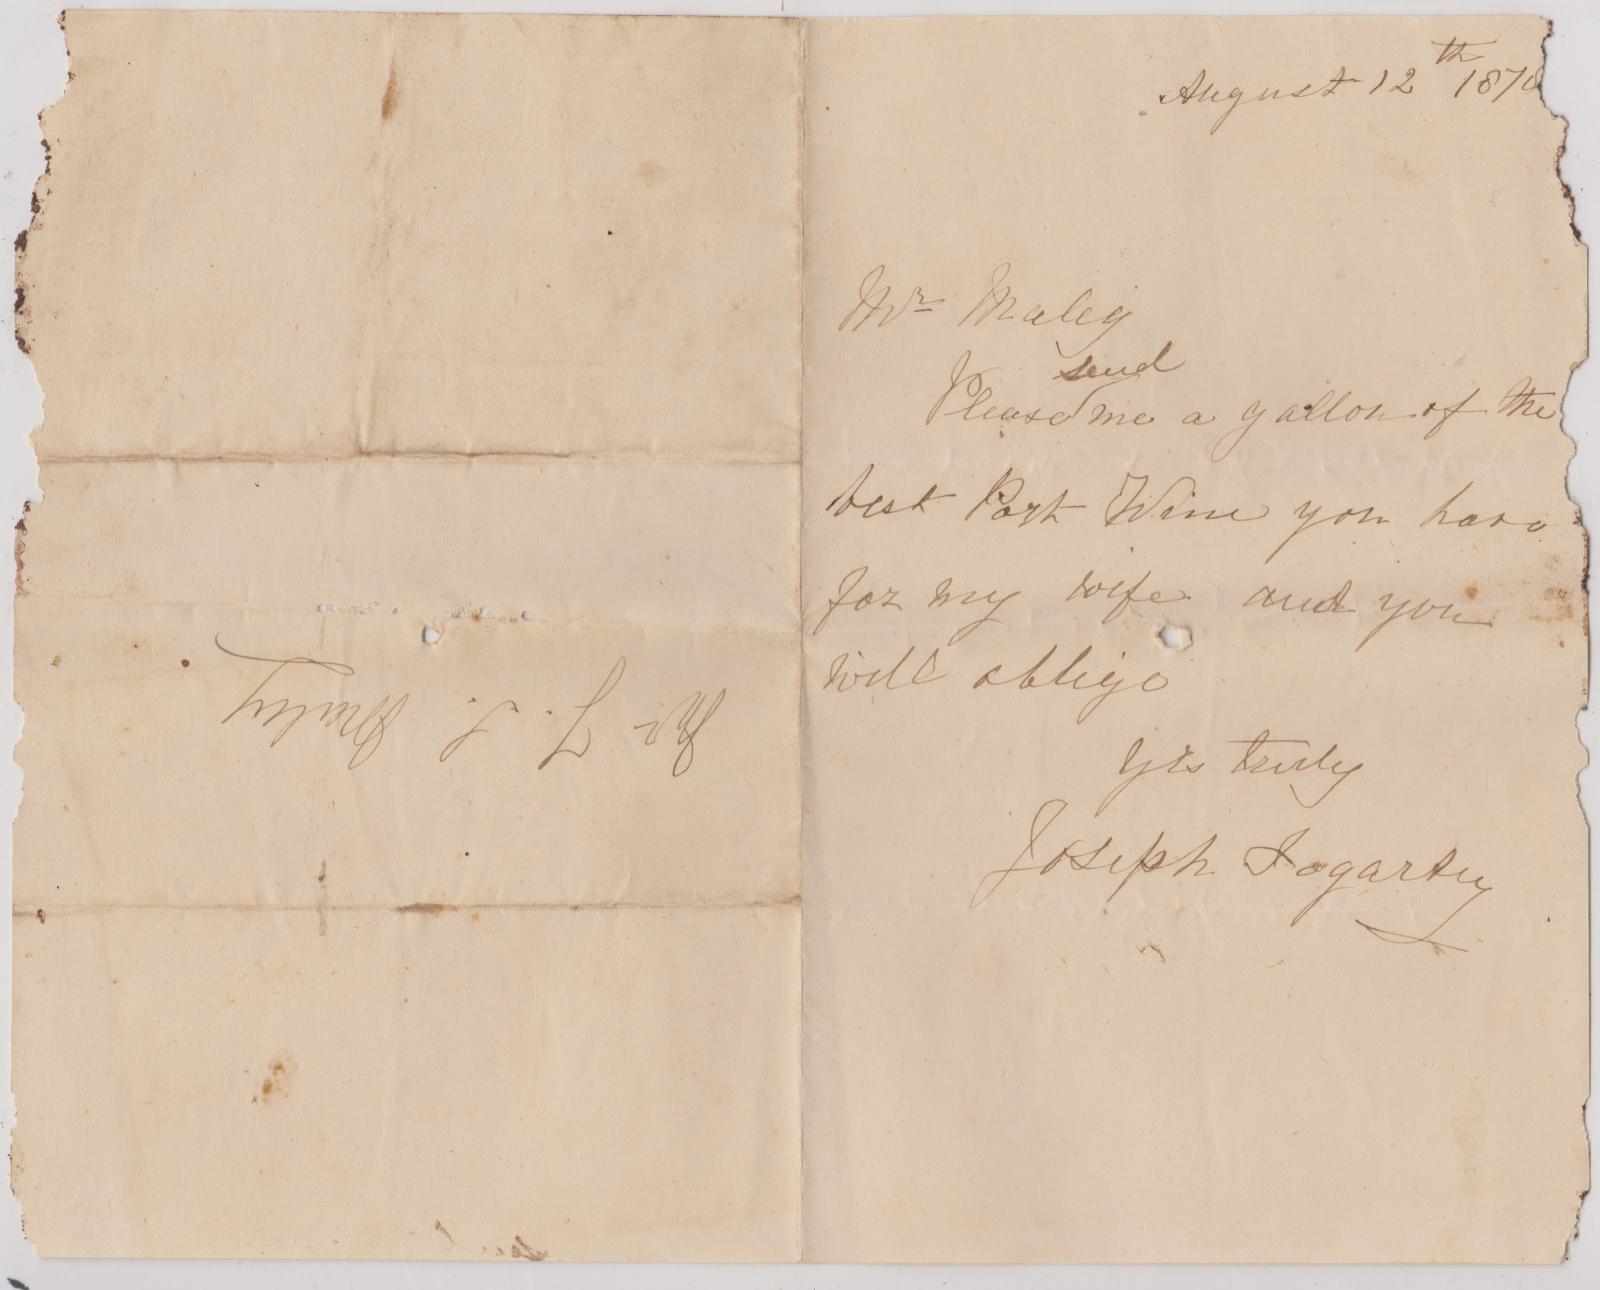 August 12th 187
Mr Maley
send
Please me a gallon of the
best Port Wine you have
for my wife and you
will oblige
Yrs truly
Joseph Fogarty
Mr F. S. Maley